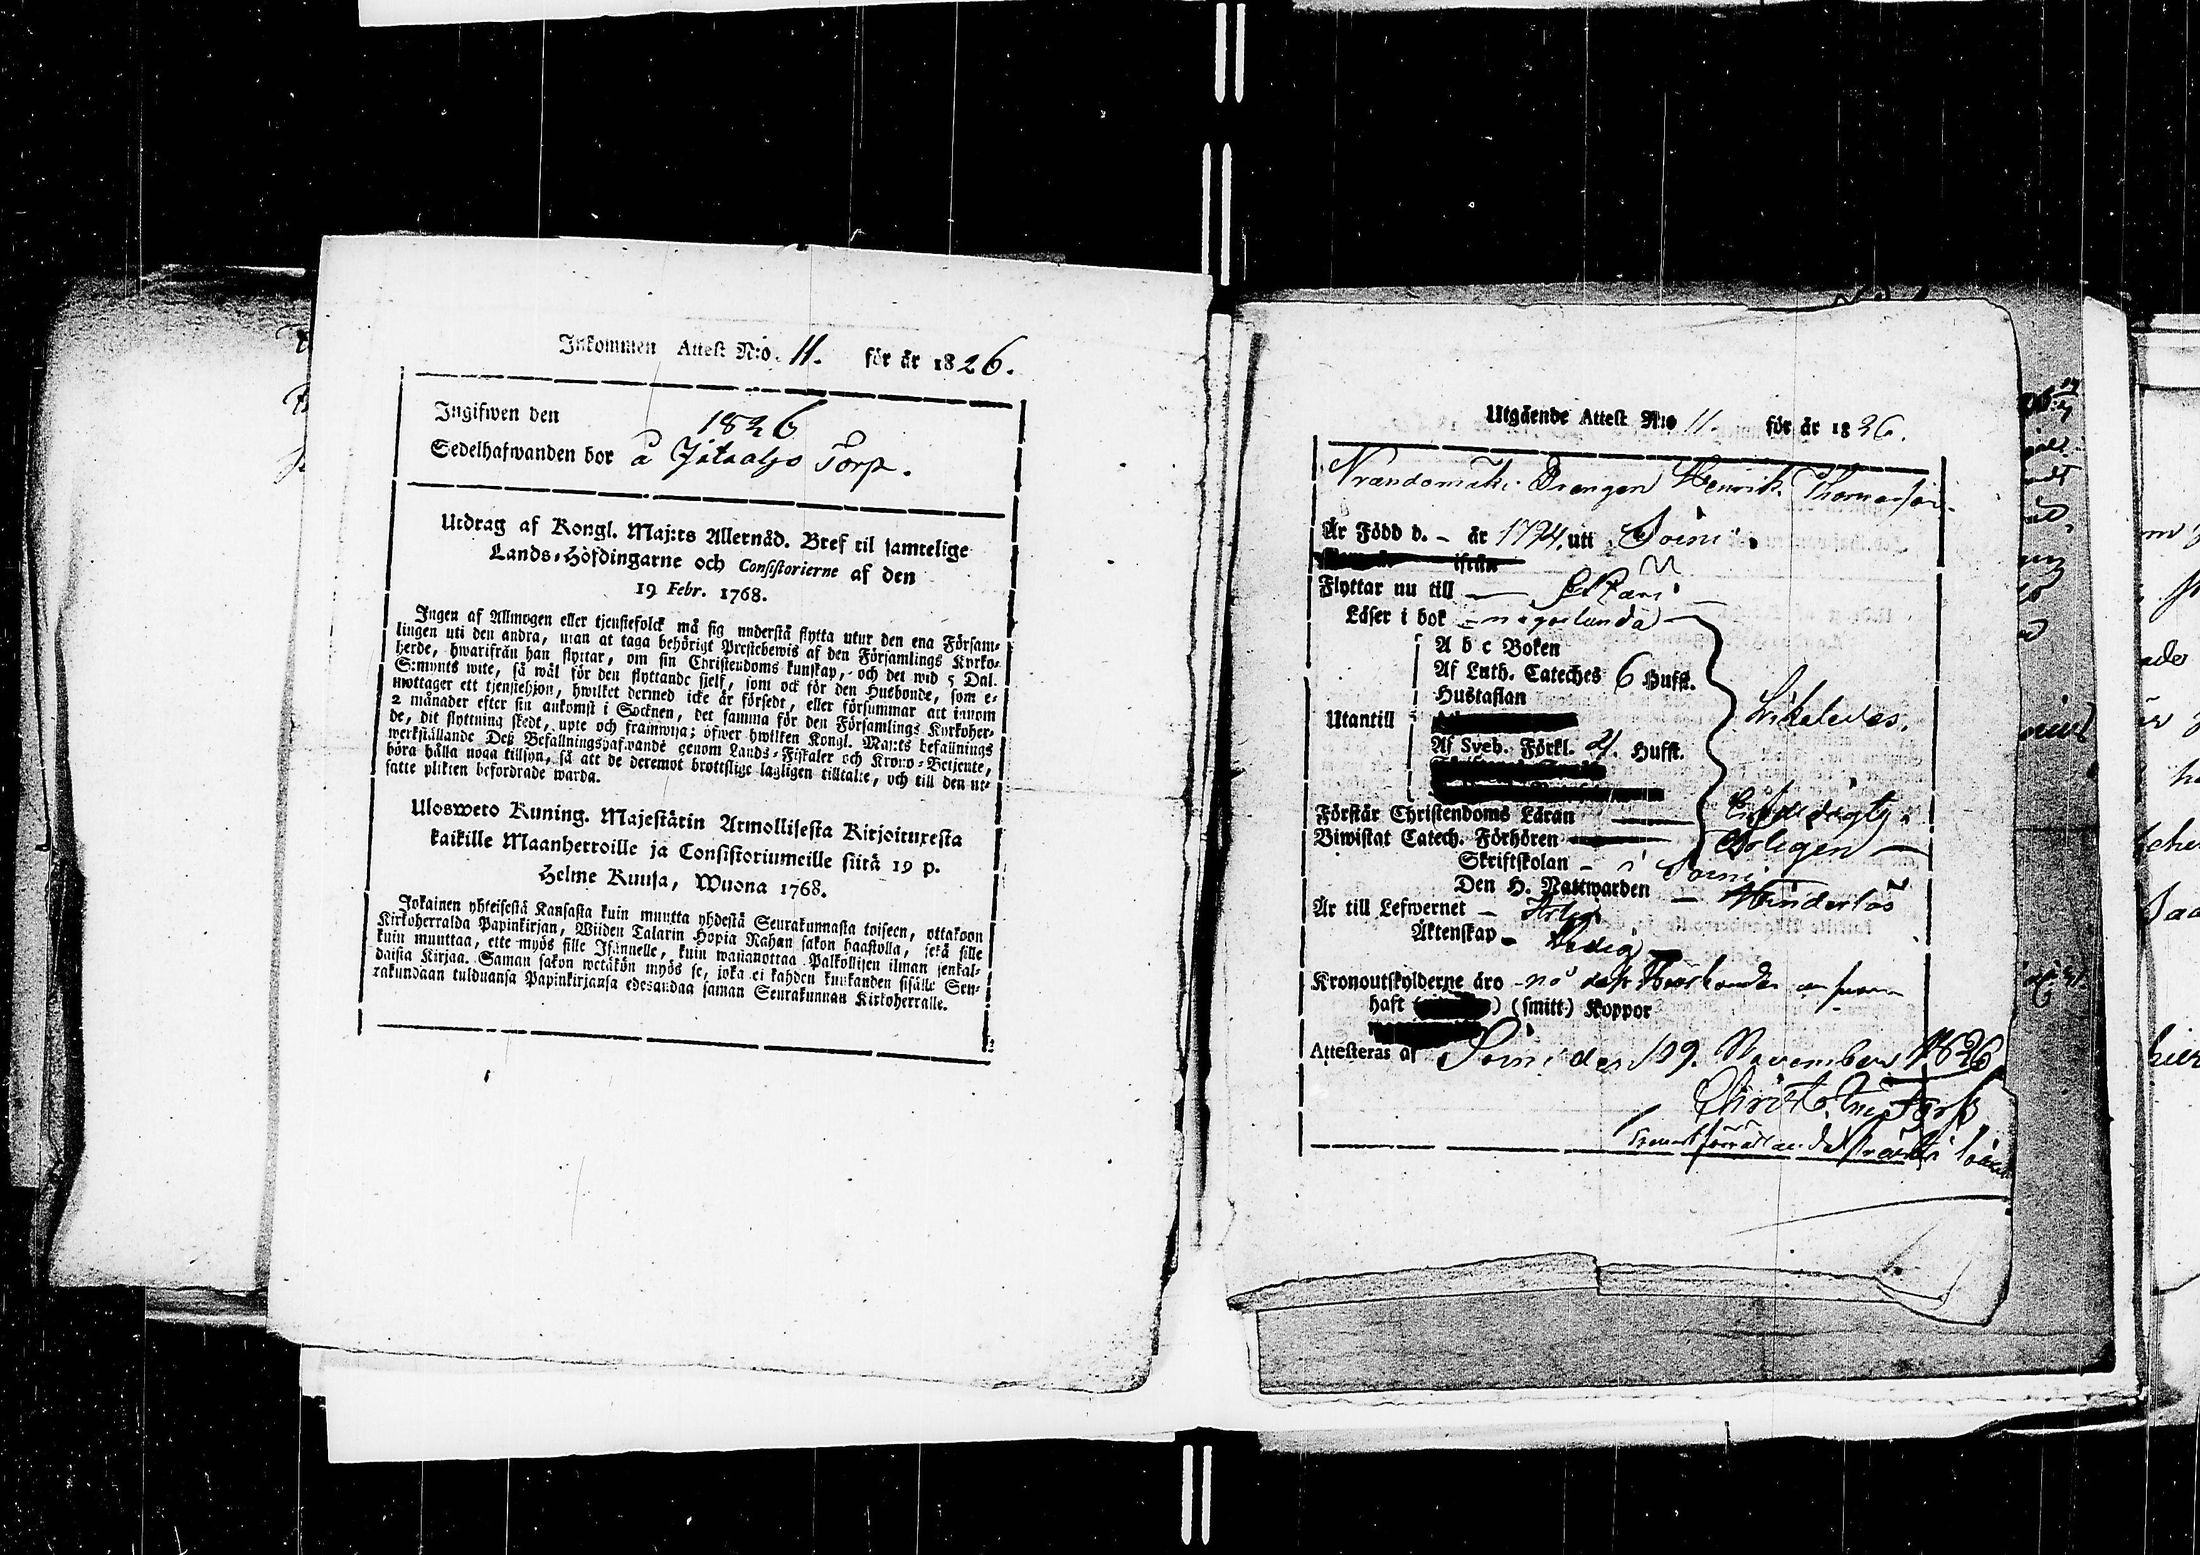 Inkommen Attest N:o. 11. för år 1826.
Ingifwen den 1826
Sedelhafwanden bor å Torp.
Utdrag af Kongl. Maj:ts Allernåd. Bref til samtelige
Lands-Höfdingarne och Consistorierne af den
19 Febr. 1768.
Ingen af Allmogen eller tjenstefolck må sig understå flytta utur den ena Försam-
lingen uti den andra, utan at taga behörigt Prestebewis af den Församlings Kyrko-
herde, hwarifrån han flyttar, om sin Christendoms kunskap, och det wid 5 Dal.
S:mynts wite, så wäl för den flyttande sielf, som ock för den Husbonde, som e-
mottager ett tjenstehjon, hwilket dermed icke är försedt, eller försummar att innom
2 månader efter sin ankomst i Socknen, det samma för den Församlings Kyrkoher-
de, dit flyttning skedt, upte och framwisa; öfwer hwilken Kongl. Maj:ts befallnings
werkställande Deß Befallningshafwande genom Lands-Fiskaler och Krono-Betjente,
böra hålla noga tillsyn, så att de deremot brottslige lagligen tilltalte, och till den ut-
satte plikten befordrade warda.
Ulosweto Kuning. Majestätin Armollisesta Kirjoituxesta
kaikille Maanherroille ja Consistoriumeille siitä 19 p.
Helme Kuusa, Wuona 1768.
Jokainen yhteisestä Kansasta kuin muutta yhdestä Seurakunnasta toiseen, ottakoon
Kirkoherralda Papinkirjan, Wiiden Talarin Hopia Rahan sakon haastolla, sekä sille
kuin muuttaa, ette myös sille Isännelle, kuin wastanottaa Palkollisen ilman senkal-
daista Kirjaa. Saman sakon wetäkön myös se, joka ei kahden kuukanden sisälle Seu-
rakundaan tulduansa Papinkirjansa edesandaa saman Seurakunnan Kirkoherralle.
Utgående Attest N:o 11. för år 1826.
Drengen Henrik Thomasson
Är Född d. - år 1794. uti Soini
Flyttar nu till
Läser i bok - någorlunda
A b c Boken
Af Luth. Cateches 6 Hufst.
Hustaflan
Utantill
Likaledes.
Af Sveb. Förkl. 2. Hufst.
Förstår Christendoms Läran
Biwistat Catech. Förhören
Skriftskolan - i Soini
Den H. Nattwarden - Hinderlös
Är till Lefwernet - Ärlig
Äktenskap - Ledig
Kronoutskylderne äro
haft (smitt) Koppor
Attesteras af Soini den 19. November 1826